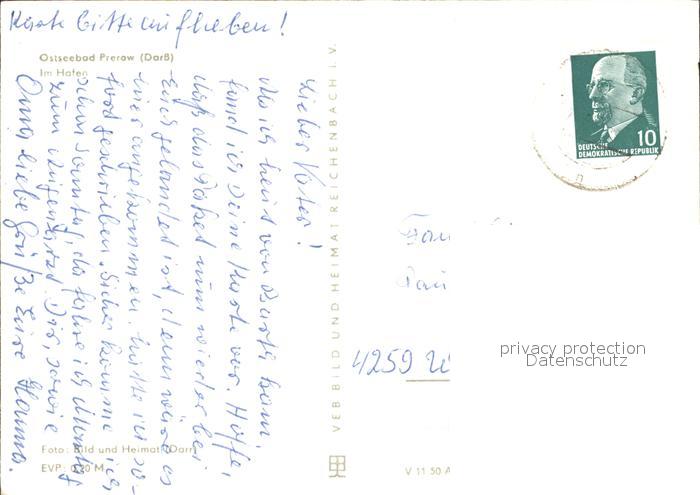 Karte bitte aufheben!
Ostseebad Prerow (Darß)
Im Hafen
Lieber Vater!
Als ich heut von Barth kam,
fand ich Deine Karte vor. Hoffe,
daß das Paket nun wieder bei
Euch gelandet ist, denn wäre es
hier angekommen, hätte ich so-
fort geschrieben. Sicher komme ich
schon Sonntag, da fahre ich Montag
zum Dir, sowie
Oma liebe Grüße Eure Hanna.
Foto: Bild und Heimat (Darr)
EVP: 0,20 M
VEB BILD UND HEIMAT REICHENBACH i. V.
V 11 50 A
DEUTSCHE
DEMOKRATISCHE REPUBLIK
10
Fam
Pau
4259
privacy protection
Datenschutz